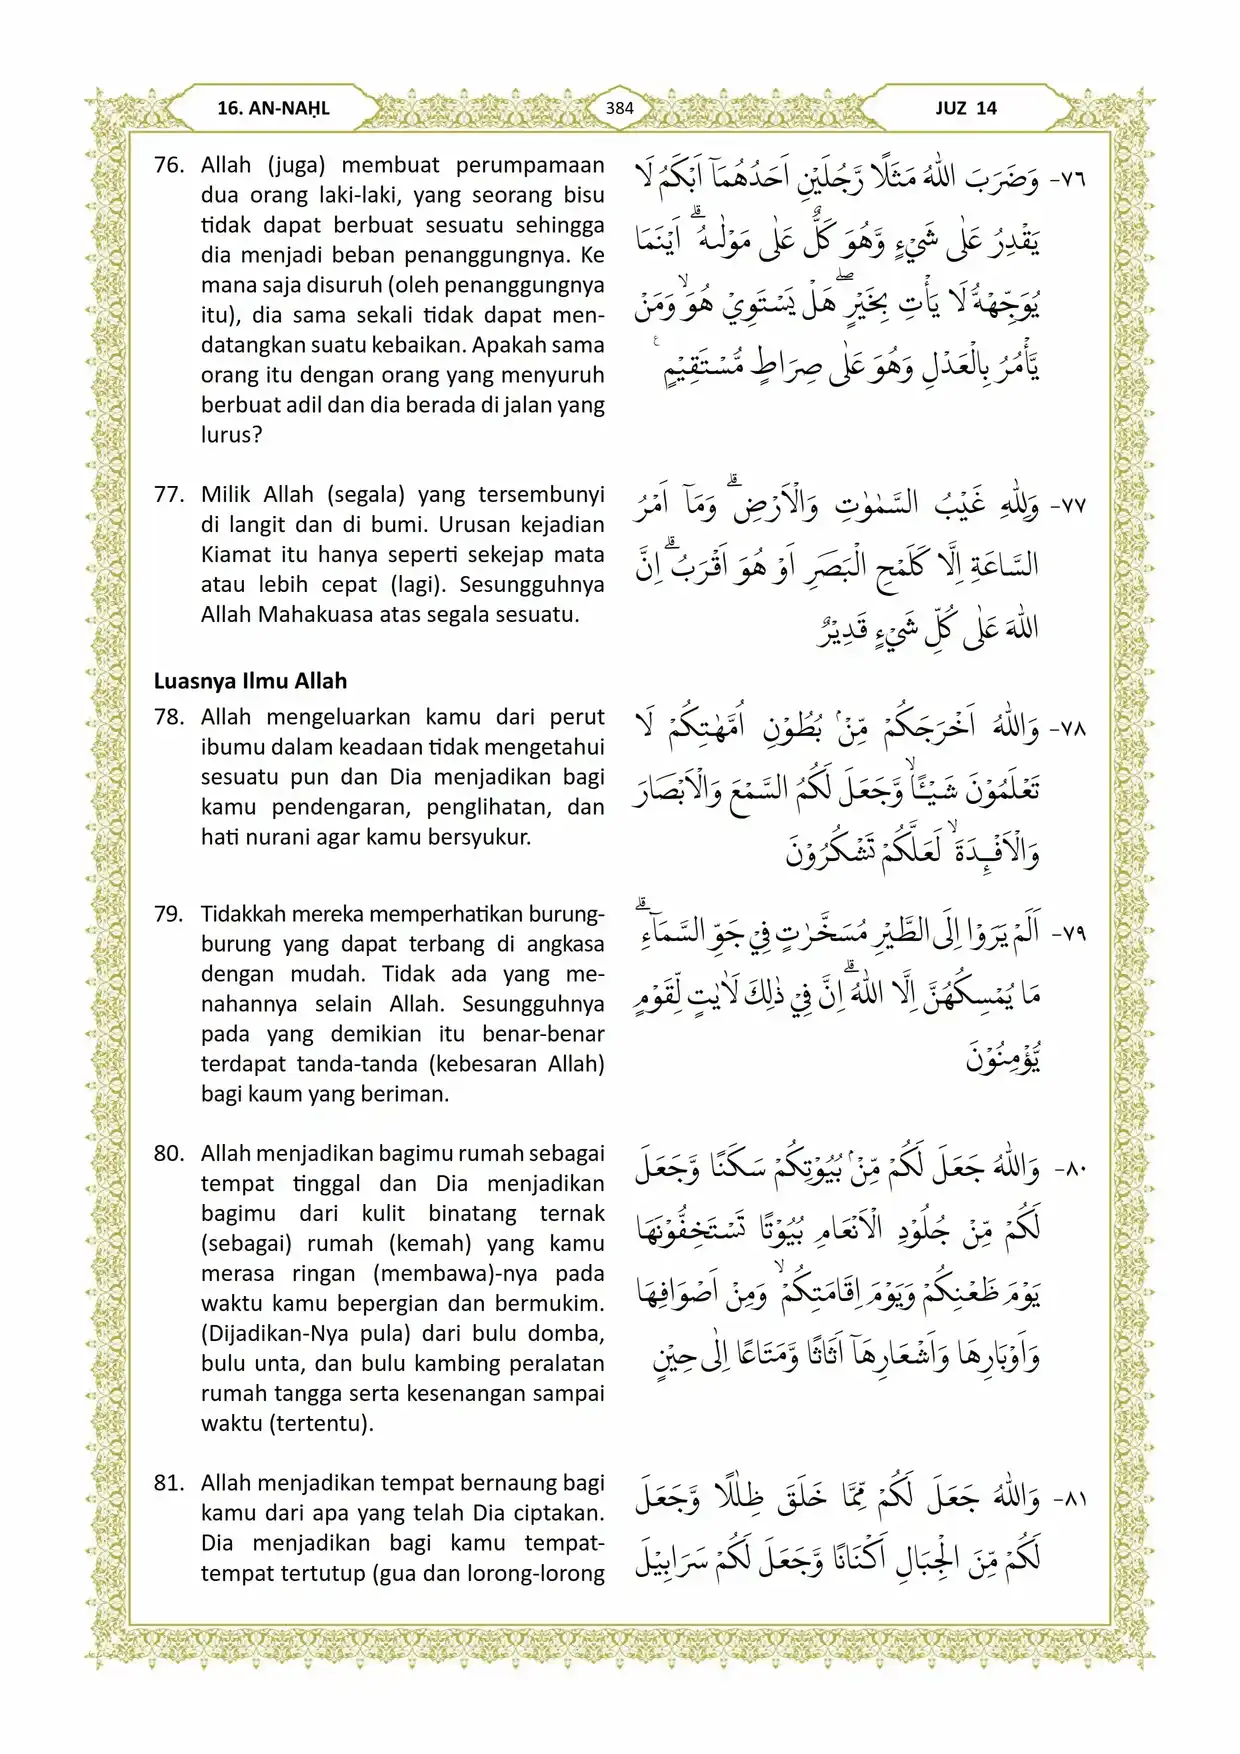 16. AN-NAḤL
384
JUZ 14
76. Allah (juga) membuat perumpamaan
dua orang laki-laki, yang seorang bisu
tidak dapat berbuat sesuatu sehingga
dia menjadi beban penanggungnya. Ke
mana saja disuruh (oleh penanggungnya
itu), dia sama sekali tidak dapat men-
datangkan suatu kebaikan. Apakah sama
orang itu dengan orang yang menyuruh
berbuat adil dan dia berada di jalan yang
lurus?
٧٦- وَضَرَبَ اللّٰهُ مَثَلًا رَّجُلَيْنِ اَحَدُهُمَآ اَبْكَمُ لَا
يَقْدِرُ عَلٰى شَيْءٍ وَّهُوَ كَلٌّ عَلٰى مَوْلٰىهُ ۗ اَيْنَمَا
يُوَجِّهْهُّ لَا يَأْتِ بِخَيْرٍ ۖ هَلْ يَسْتَوِيْ هُوَ ۙ وَمَنْ
يَّأْمُرُ بِالْعَدْلِ وَهُوَ عَلٰى صِرَاطٍ مُّسْتَقِيْمٍ ࣖ
77. Milik Allah (segala) yang tersembunyi
di langit dan di bumi. Urusan kejadian
Kiamat itu hanya seperti sekejap mata
atau lebih cepat (lagi). Sesungguhnya
Allah Mahakuasa atas segala sesuatu.
٧٧- وَلِلّٰهِ غَيْبُ السَّمٰوٰتِ وَالْاَرْضِ ۗ وَمَآ اَمْرُ
السَّاعَةِ اِلَّا كَلَمْحِ الْبَصَرِ اَوْ هُوَ اَقْرَبُ ۗ اِنَّ
اللّٰهَ عَلٰى كُلِّ شَيْءٍ قَدِيْرٌ
Luasnya Ilmu Allah
78. Allah mengeluarkan kamu dari perut
ibumu dalam keadaan tidak mengetahui
sesuatu pun dan Dia menjadikan bagi
kamu pendengaran, penglihatan, dan
hati nurani agar kamu bersyukur.
٧٨- وَاللّٰهُ اَخْرَجَكُمْ مِّنْۢ بُطُوْنِ اُمَّهٰتِكُمْ لَا
تَعْلَمُوْنَ شَيْـًٔا ۙ وَّجَعَلَ لَكُمُ السَّمْعَ وَالْاَبْصَارَ
وَالْاَفْـِٕدَةَ ۙ لَعَلَّكُمْ تَشْكُرُوْنَ
79. Tidakkah mereka memperhatikan burung-
burung yang dapat terbang di angkasa
dengan mudah. Tidak ada yang me-
nahannya selain Allah. Sesungguhnya
pada yang demikian itu benar-benar
terdapat tanda-tanda (kebesaran Allah)
bagi kaum yang beriman.
٧٩- اَلَمْ يَرَوْا اِلَى الطَّيْرِ مُسَخَّرٰتٍ فِيْ جَوِّ السَّمَآءِ ۗ
مَا يُمْسِكُهُنَّ اِلَّا اللّٰهُ ۗ اِنَّ فِيْ ذٰلِكَ لَاٰيٰتٍ لِّقَوْمٍ
يُّؤْمِنُوْنَ
80. Allah menjadikan bagimu rumah sebagai
tempat tinggal dan Dia menjadikan
bagimu dari kulit binatang ternak
(sebagai) rumah (kemah) yang kamu
merasa ringan (membawa)-nya pada
waktu kamu bepergian dan bermukim.
(Dijadikan-Nya pula) dari bulu domba,
bulu unta, dan bulu kambing peralatan
rumah tangga serta kesenangan sampai
waktu (tertentu).
٨٠- وَاللّٰهُ جَعَلَ لَكُمْ مِّنْۢ بُيُوْتِكُمْ سَكَنًا وَّجَعَلَ
لَكُمْ مِّنْ جُلُوْدِ الْاَنْعَامِ بُيُوْتًا تَسْتَخِفُّوْنَهَا
يَوْمَ ظَعْنِكُمْ وَيَوْمَ اِقَامَتِكُمْ ۙ وَمِنْ اَصْوَافِهَا
وَاَوْبَارِهَا وَاَشْعَارِهَآ اَثَاثًا وَّمَتَاعًا اِلٰى حِيْنٍ
81. Allah menjadikan tempat bernaung bagi
kamu dari apa yang telah Dia ciptakan.
Dia menjadikan bagi kamu tempat-
tempat tertutup (gua dan lorong-lorong
٨١- وَاللّٰهُ جَعَلَ لَكُمْ مِّمَّا خَلَقَ ظِلٰلًا وَّجَعَلَ
لَكُمْ مِّنَ الْجِبَالِ اَكْنَانًا وَّجَعَلَ لَكُمْ سَرَابِيْلَ